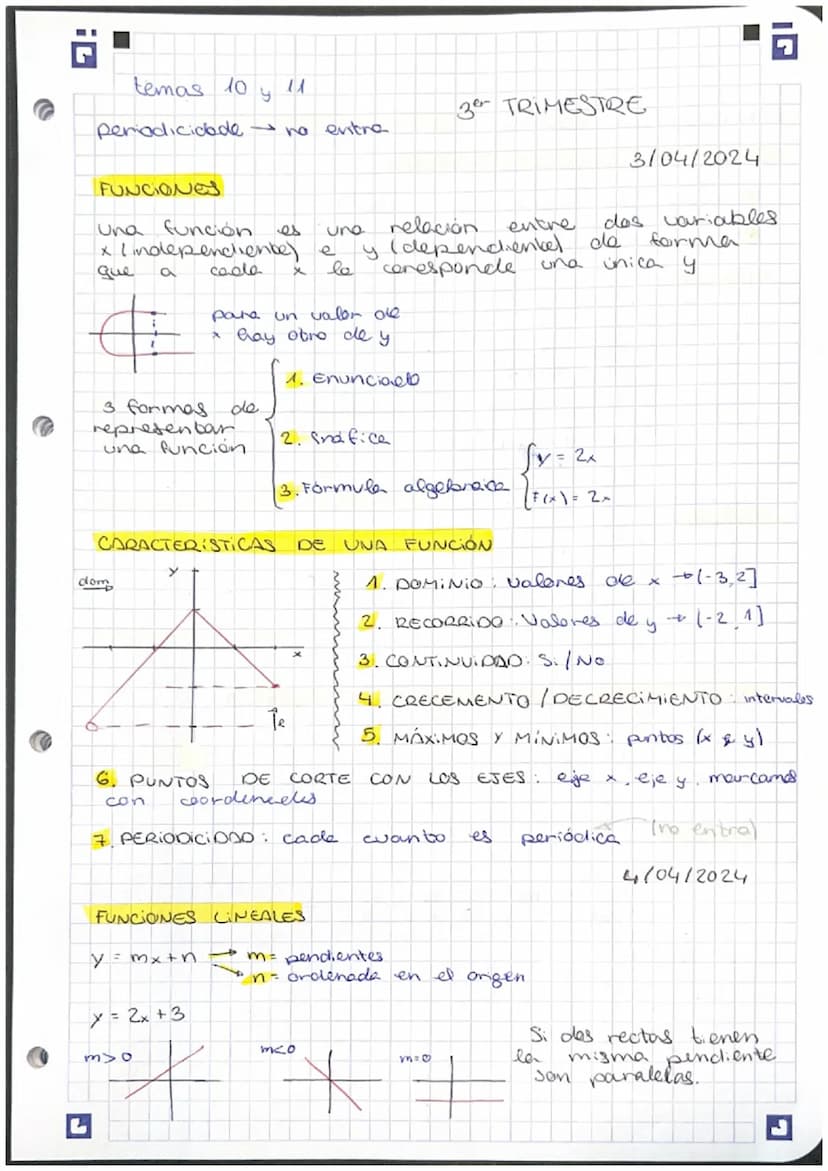 temas 10 y 11
3er TRIMESTRE
periodicidade → no entra
3/04/2024
FUNCIONES
una función es una relación entre dos variables
x (independiente) e y (dependiente) de forma
que a cada x le coresponde una única y
para un valor de
x hay otro de y
3 formas de
representar
una función
1. Enunciado
2. Gráfica
3. Fórmula algebraica
y = 2x
F(x) = 2x
CARACTERÍSTICAS DE UNA FUNCIÓN
dom
y
x
R
1. DOMINIO: Valores de x → (-3,2]
2. RECORRIDO: Valores de y → (-2,1]
3. CONTINUIDAD: Si/No
4. CRECEMENTO / DECRECIMIENTO: intervalos
5. MÁXIMOS Y MÍNIMOS: puntos (x e y)
6. PUNTOS DE CORTE CON LOS EJES: eje x, eje y, marcamos
con coordenadas
7. PERIODICIDAD: cada cuanto es periódica (no entra)
4/04/2024
FUNCIONES LINEALES
y = mx+n → m= pendientes
n= ordenada en el origen
y = 2x+3
m>0
m<0
m=0
Si dos rectas tienen
la misma pendiente
son paralelas.